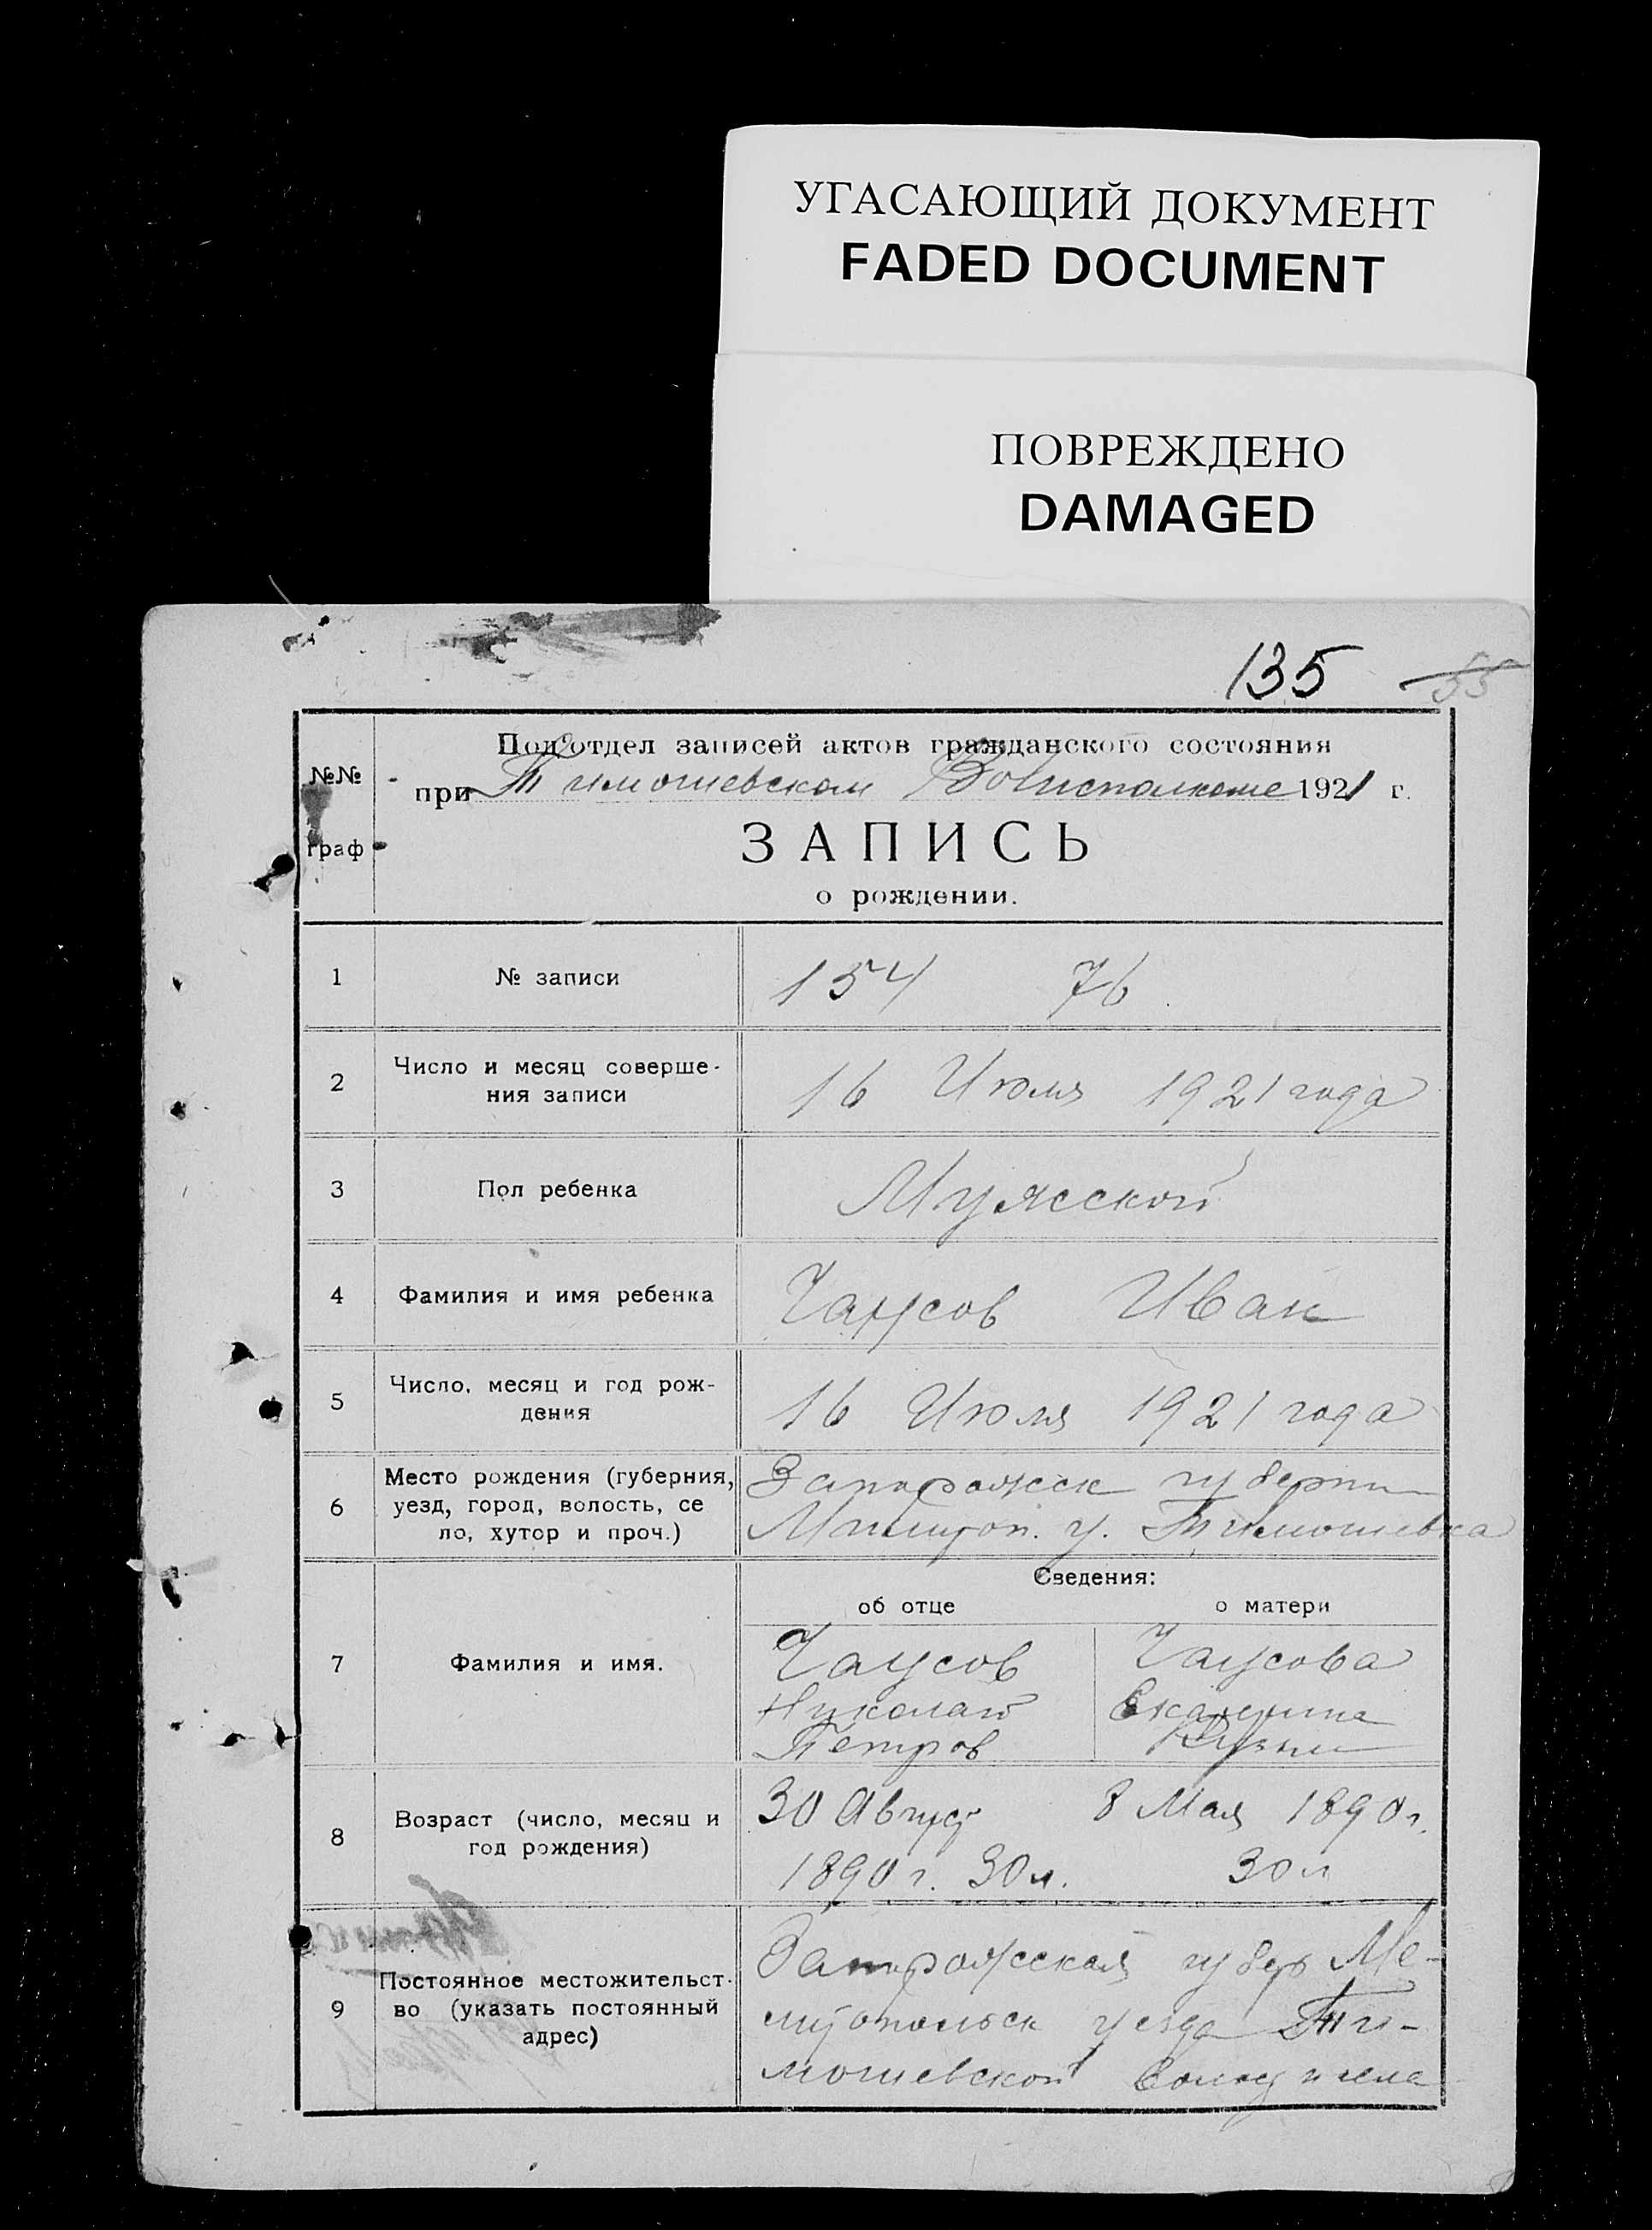 УГАСАЮЩИЙ ДОКУМЕНТ
FADED DOCUMENT
ПОВРЕЖДЕНО
DAMAGED
135 55
№№
граф
Подотдел записей актов гражданского состояния
при Тимошевском Волисполкоме 1921 г.
ЗАПИСЬ
о рождении.
1 № записи 154 76
2 Число и месяц соверше-
ния записи 16 Июля 1921 года
3 Пол ребенка Мужской
4 Фамилия и имя ребенка Чаусов Иван
5 Число, месяц и год рож-
дения 16 Июля 1921 года
6 Место рождения (губерния,
уезд, город, волость, се
ло, хутор и проч.)
Запорожск губерни
Мелитоп. у. Тимошевка
Сведения:
об отце о матери
7 Фамилия и имя.
Чаусов Чаусова
Николай Екатерина
Петров
8 Возраст (число, месяц и
год рождения)
30 Август 8 Мая 1890 г.
1890 г. 30 л. 30 л
9 Постоянное местожительст-
во (указать постоянный
адрес)
Запорожская губер Ме-
литопольск уезда Ти-
мошевской волост и села